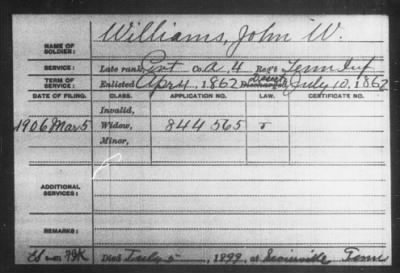 Williams, John W.
NAME OF SOLDIER:
SERVICE: Late rank, Pvt Co. A, 4 Reg't Tenn Inf
TERM OF SERVICE: Enlisted Apr 4, 1862 Discharged July 10, 1862
DATE OF FILING. CLASS. APPLICATION NO. LAW. CERTIFICATE NO.
Invalid,
1906 Mar 5 Widow, 844565
Minor,
ADDITIONAL SERVICES:
REMARKS:
Died July 5, 1899, at Sevierville Tenn